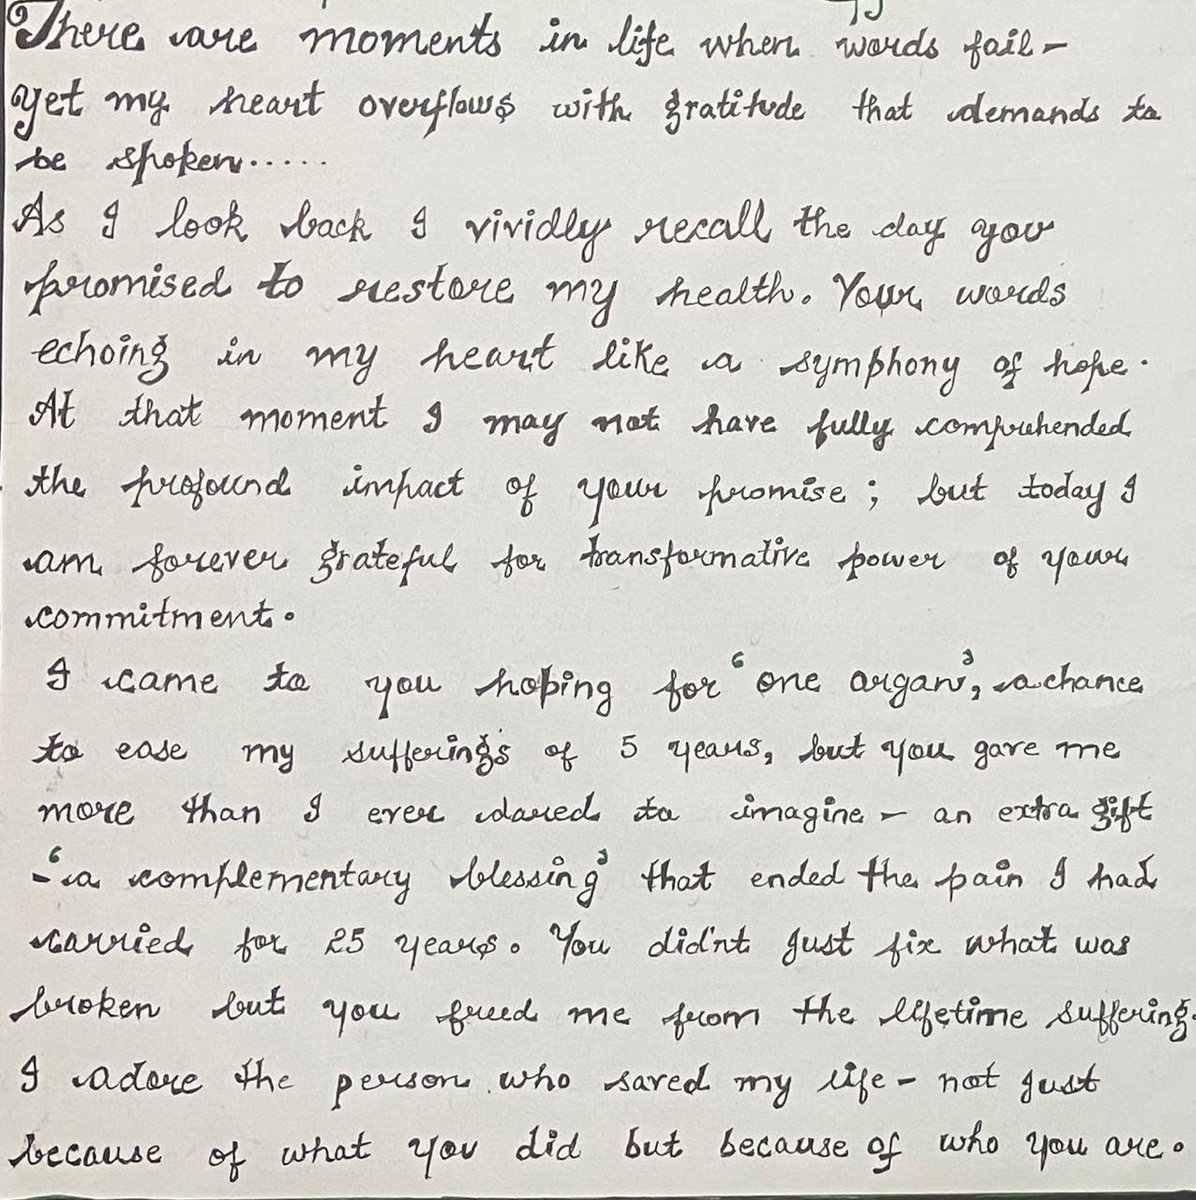 There are moments in life when words fail -
yet my heart overflows with gratitude that demands to
be spoken.....
As I look back I vividly recall the day you
promised to restore my health. Your words
echoing in my heart like a symphony of hope.
At that moment I may not have fully comprehended
the profound impact of your promise; but today I
am forever grateful for transformative power of your
commitment.
I came to you hoping for 'one organ', a chance
to ease my sufferings of 5 years, but you gave me
more than I ever dared to imagine - an extra gift
- 'a complementary blessing' that ended the pain I had
carried for 25 years. You did'nt just fix what was
broken but you freed me from the lifetime suffering.
I adore the person who saved my life - not just
because of what you did but because of who you are.